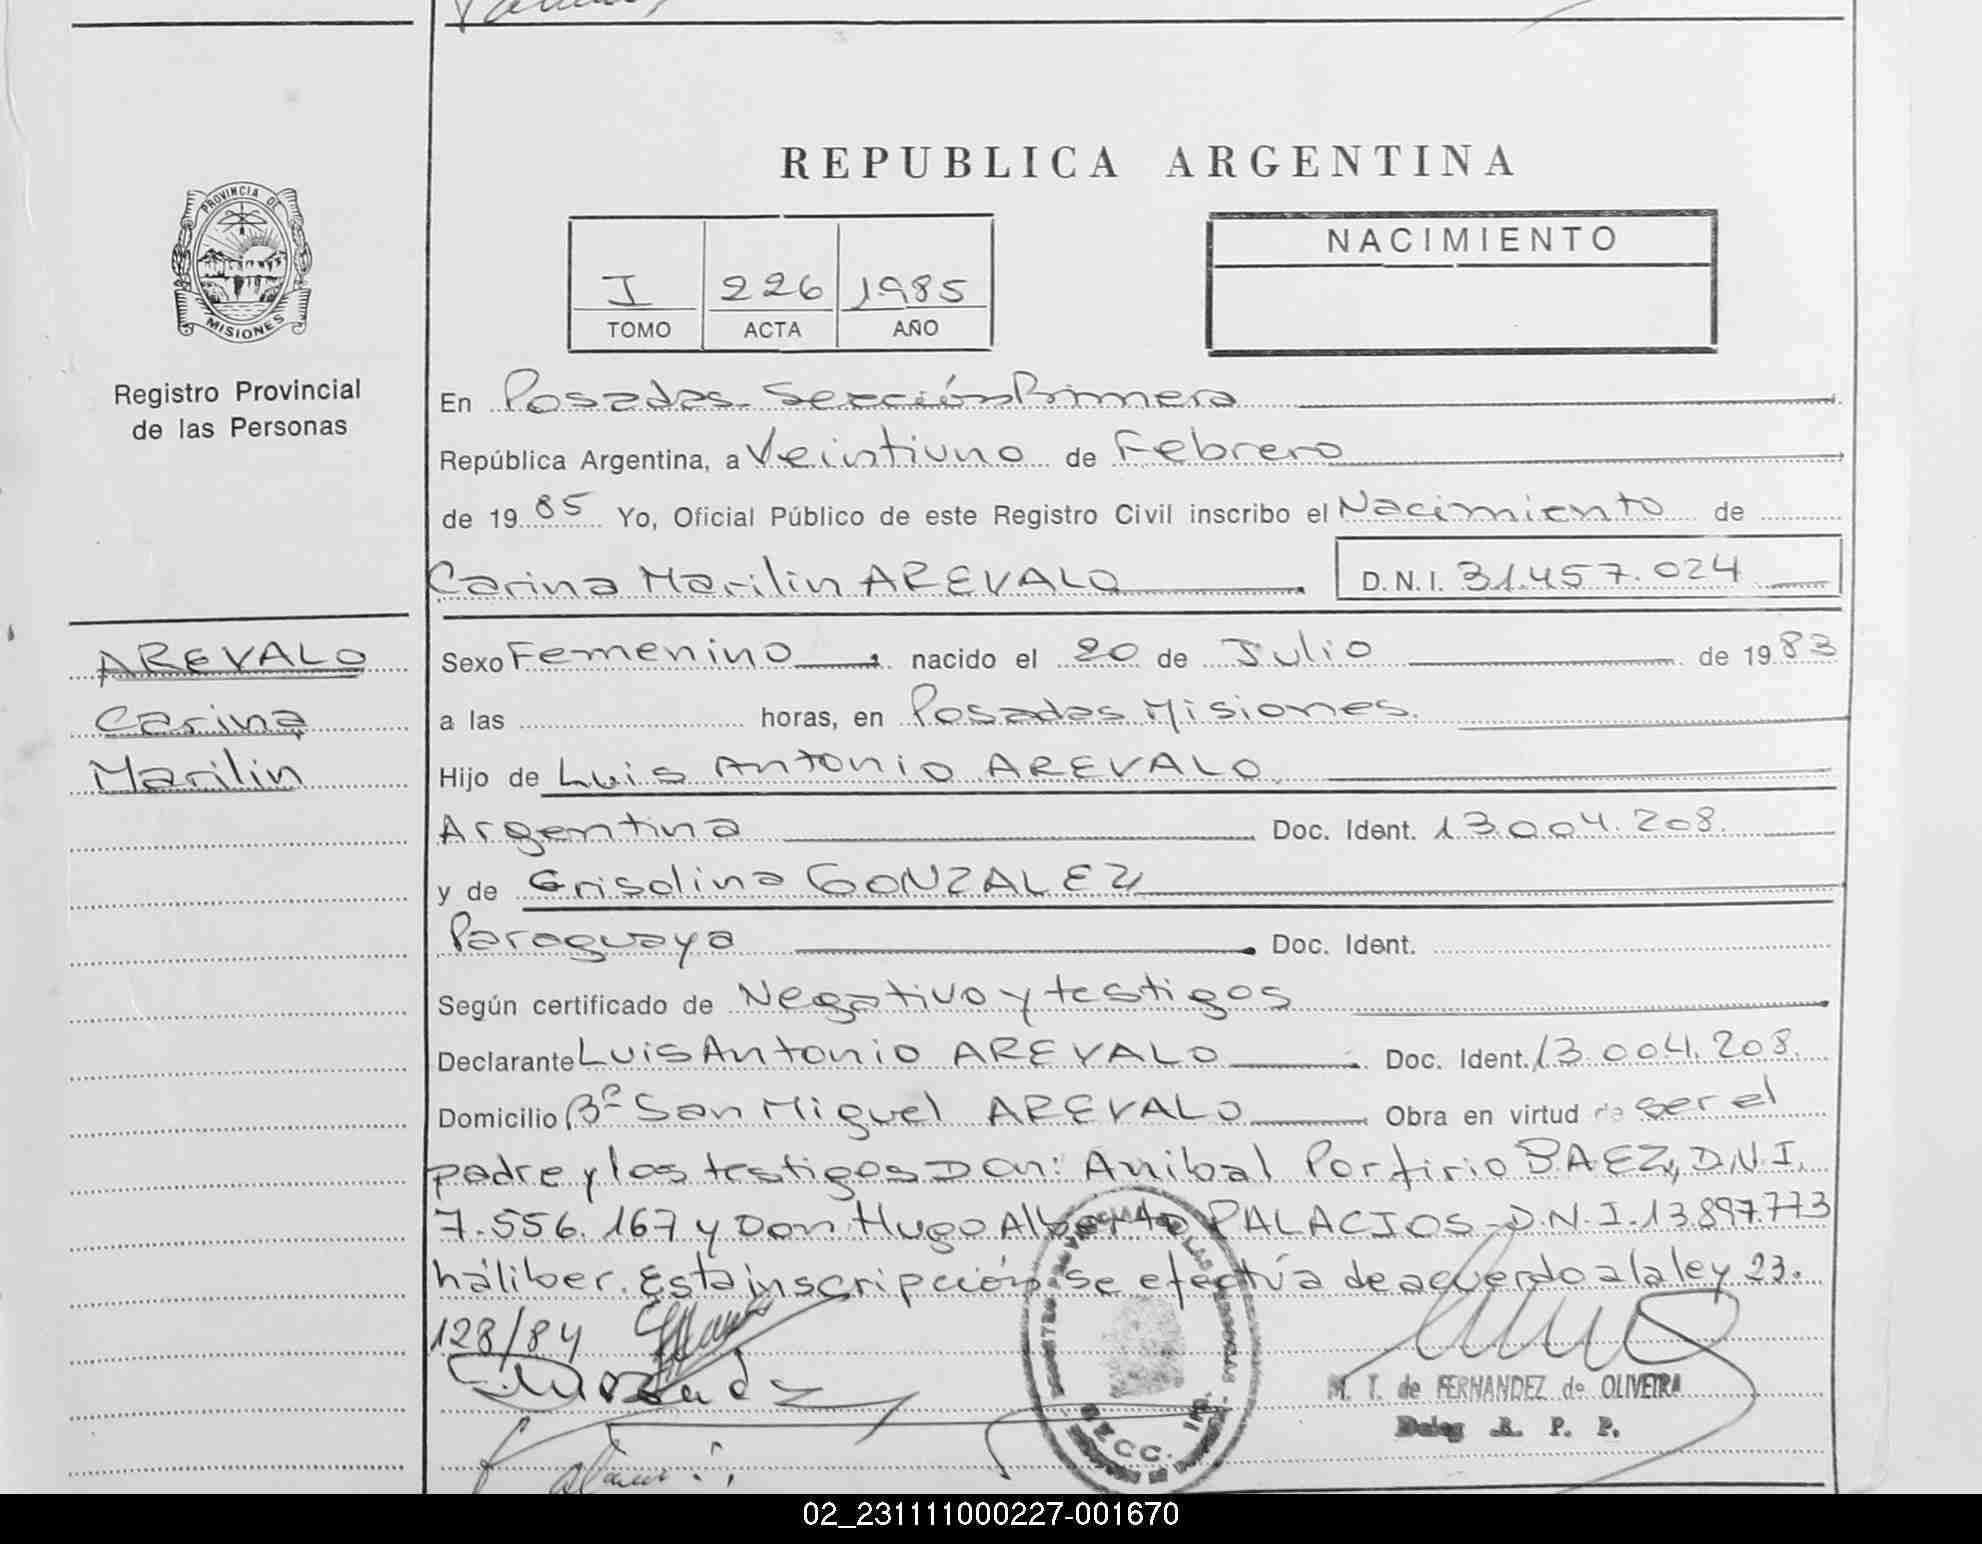 REPUBLICA ARGENTINA
PROVINCIA DE
MISIONES
Registro Provincial
de las Personas
I 226 1985
TOMO ACTA AÑO
NACIMIENTO
En Posadas Sección Primera
República Argentina, a Veintiuno de Febrero
de 1985 Yo, Oficial Público de este Registro Civil inscribo el Nacimiento de
Carina Marilin AREVALO D.N.I. 31.457.024
AREVALO
Carina
Marilin
Sexo Femenino nacido el 20 de Julio de 1983
a las horas, en Posadas Misiones.
Hijo de Luis Antonio AREVALO
Argentina Doc. Ident. 13.004.208.
y de Grisolina GONZALEZ
Paraguaya Doc. Ident.
Según certificado de Negativo y testigos
Declarante Luis Antonio AREVALO Doc. Ident. 13.004.208.
Domicilio Bº San Miguel AREVALO Obra en virtud de ser el
padre y los testigos Don: Anibal Porfirio BAEZ, D.N.I.
7.556.167 y Don Hugo Alberto PALACIOS - D.N.I. 13.897.773
háliber. Esta inscripción se efectúa de acuerdo a la ley 23.
128/84
M. T. de FERNANDEZ de OLIVEIRA
Deleg. R. P. P.
SECC. 1ra.
02_231111000227-001670